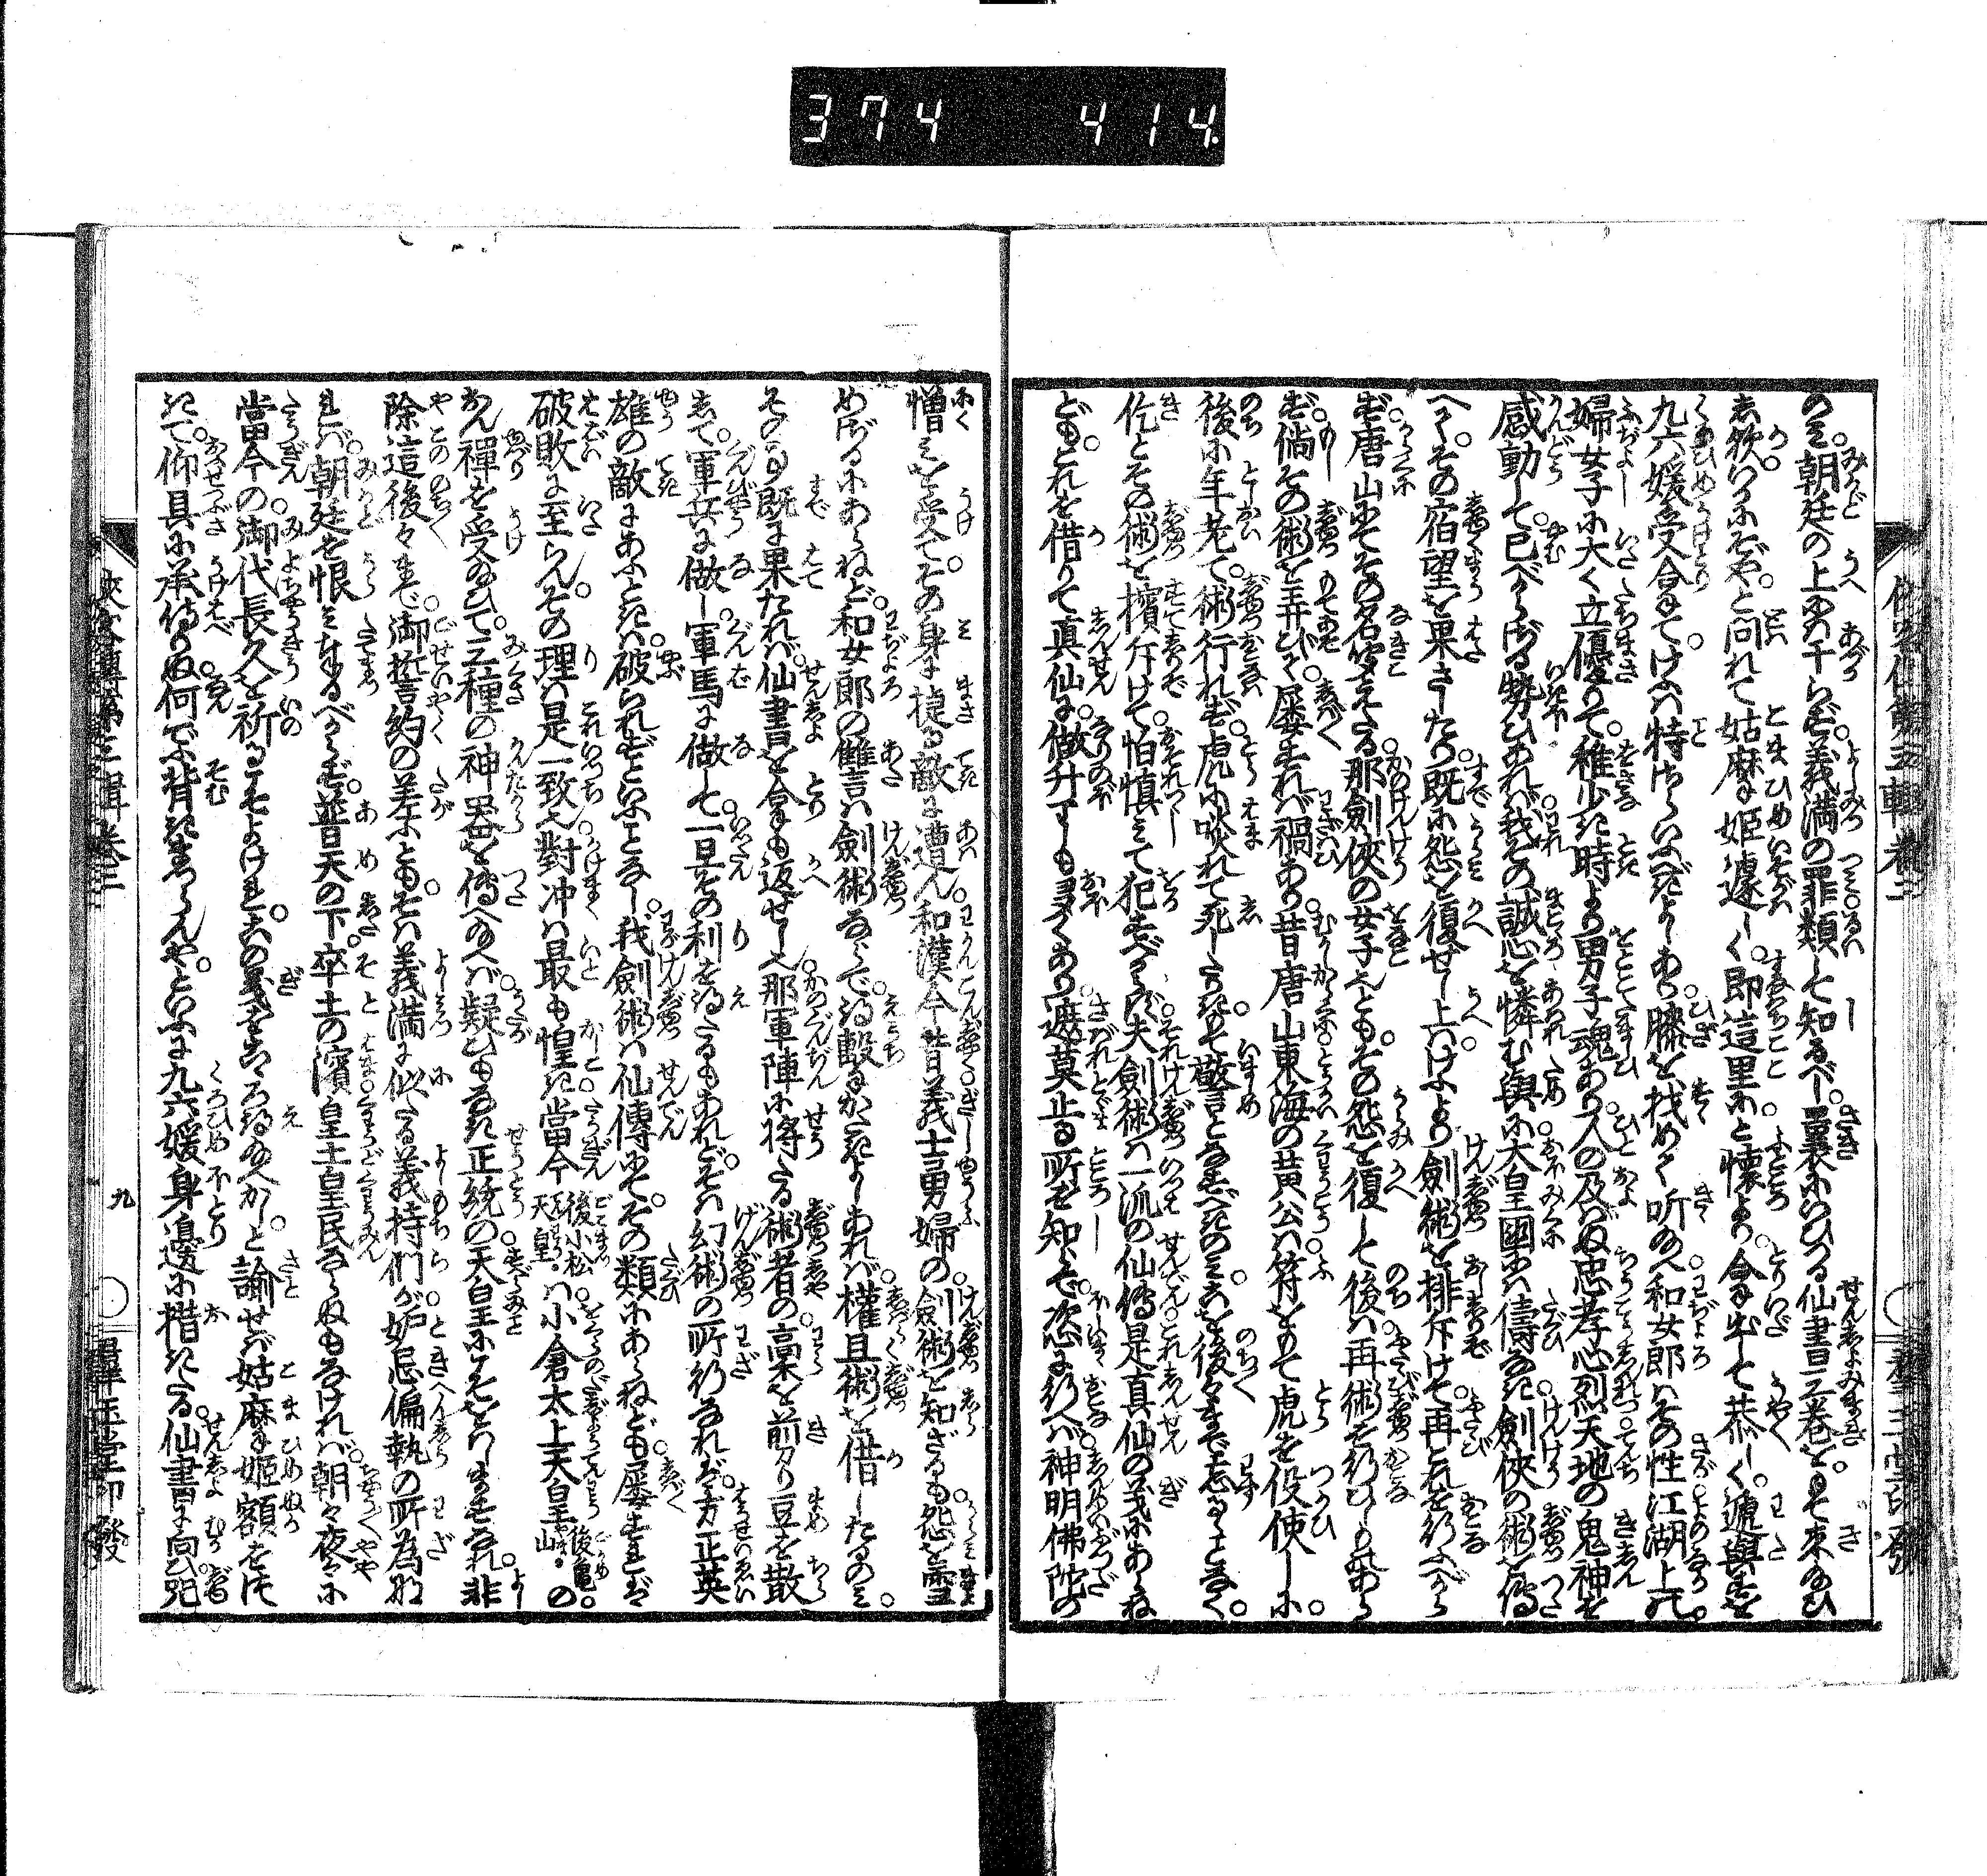 374 414
のミ。朝廷の上に干らず。義満の罪類して知るべし。曩にいひつる仙書三巻を。もて来給ひ
し歟いかにぞや。と問れて姑麻姫遽しく。即這里にと懐より。拿出して恭しく。遞與すを
九六媛受合て。けふハ特さらいふべきよしあり。膝を找めて听給へ。和女郎ハその性江湖上の。
婦女子に大く立優りて。稚少き時より男子魂あり。人の及バぬ忠孝心烈。天地の鬼神を
感動して。已べからざる勢ひあれバ。我その誠心を憐む與に。大皇國にハ儔なき。劍侠の術を傳
へしに。その宿望を果したり。既に怨を復せし上ハ。けふより劍術を排斥けて。再これを行ふべから
ず。唐山にてその名聞えたる。那劍侠の女子といへども。その怨を復して後ハ。再術を行ひしもあら
ず。倘その術を弄びて。屡すれバ禍あり。昔唐山東海の黄公ハ。符をもて虎を役使しに。
後に年老て。術行れず。虎に啖れて死したりき。もて警となすべきのミ。これを後々まで忘るゝことなく。
佐とその術を擯斥けて。怕慎ミて犯すべからず。夫劍術ハ一流の仙傳。是真仙の義にあらね
ども。これを借りて真仙に。做升りしも多くあり。遮莫止る所を知らで。恣に行へバ神明佛陀の
憎ミを受て。その身に捷る敵に遭ん。和漢今昔。義士勇婦の。劍術を知ざるも。怨を雪
めざるにあらねど。和女郎の讐言ハ劍術ならで。得撃がたきよしあれバ。權且術を借したるのミ。
その事既に果たれバ。仙書を拿も返せし也。那軍陣に将たる術者の。藁を剪り豆を散
して。軍兵に做し。軍馬に做して。一旦その利を得たるもあれど。そハ幻術の所行なれバ。方正英
雄の敵にあふときハ。破られずといふことなし。我劍術ハ仙傳にて。その類にあらねども。屡すれバ
破敗に至らん。その理ハ是一致也。對冲ハ最も惶き。當今後小松天皇。ハ小倉太上天皇後亀山。の
おん禪を受給ひて。三種の神器を傳へ給へバ。疑ひもなき正統の天皇にこそをはしますなれ。非
除這後々まで。御誓約の差ふとも。そハ義満に似たる義持們が。妒忌偏執の所為
れバ。朝廷を恨ミ奉るべからず。普天の下。率土の濱。皇土皇民ならぬもなけれバ。朝々夜々に
當今の。御代長久を祈るこそよけれ。この義をこゝろ得給へかし。と諭せバ姑麻姫額をつ
きて。仰具に承侍りぬ。何でふ背き侍らんや。といふに九六媛身邊に措きたる。仙書に向ひ咒
九